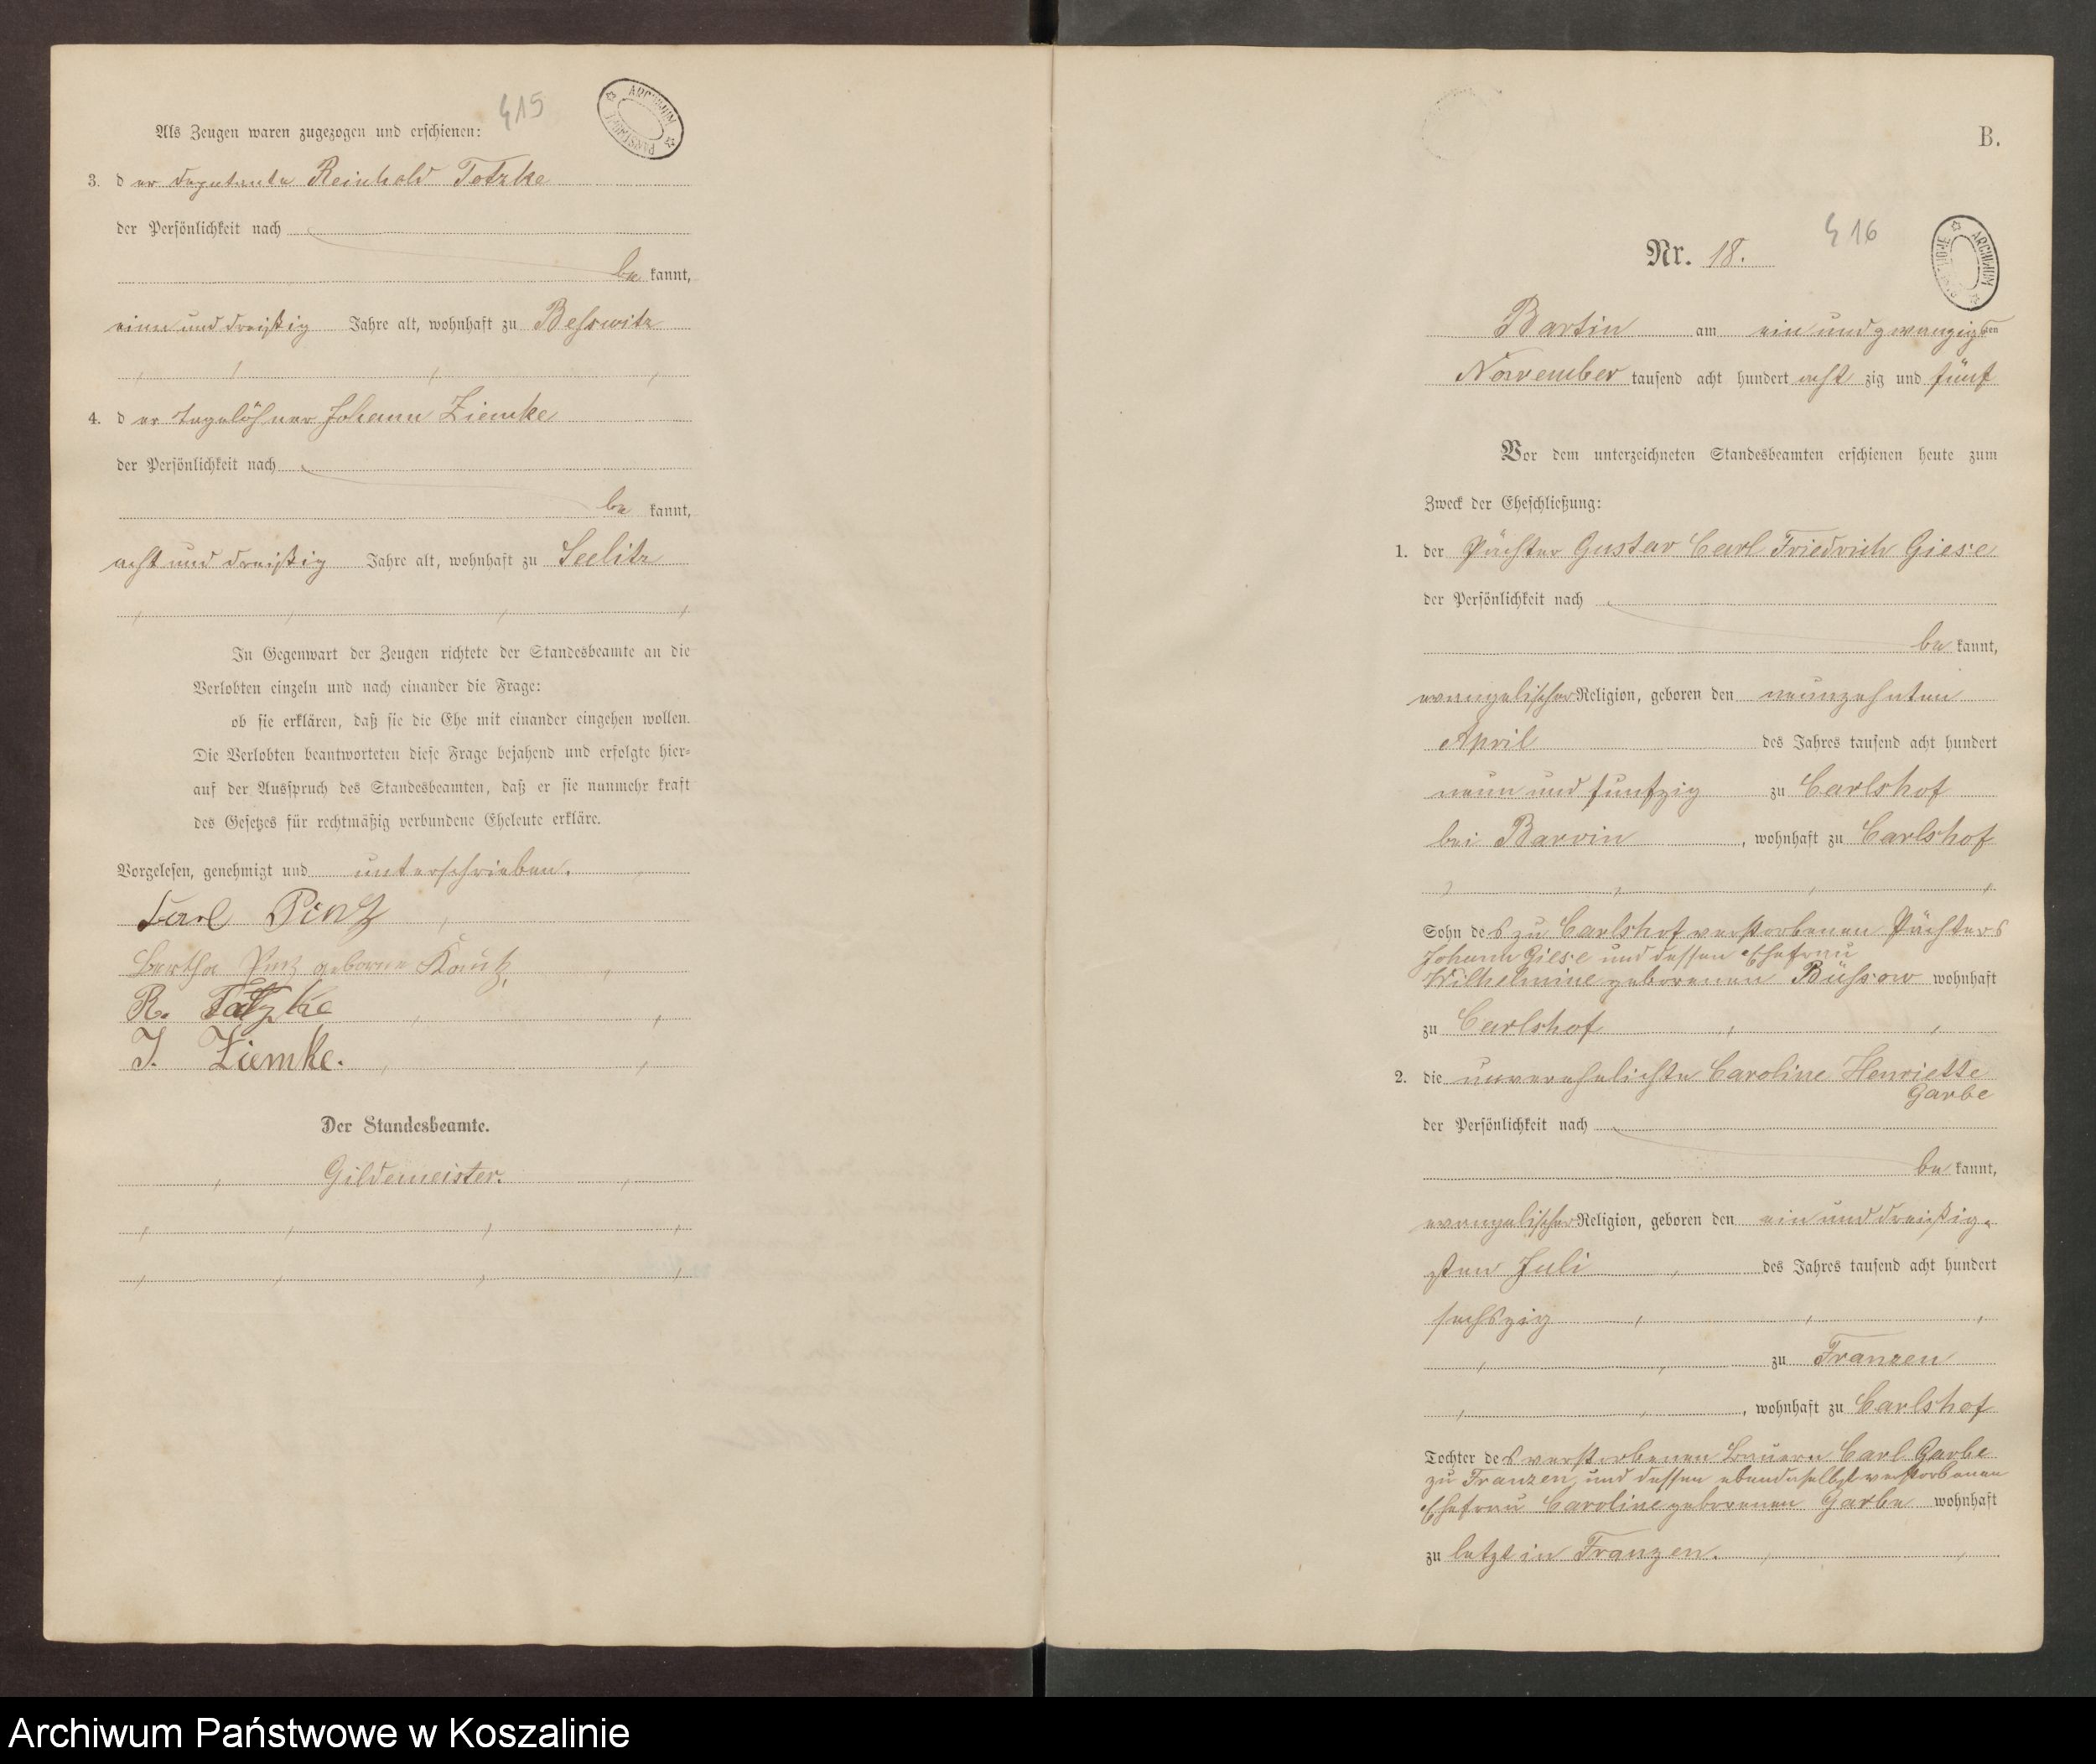 415
ARCHIWUM PAŃSTWOWE
Als Zeugen waren zugezogen und erschienen:
3. der Deputante Reinhold Totzke
der Persönlichkeit nach
be kannt,
einunddreißig Jahre alt, wohnhaft zu Beßwitz
4. der Tagelöhner Johann Ziemke
der Persönlichkeit nach
be kannt,
acht und dreißig Jahre alt, wohnhaft zu Seelitz
In Gegenwart der Zeugen richtete der Standesbeamte an die
Verlobten einzeln und nach einander die Frage:
ob sie erklären, daß sie die Ehe mit einander eingehen wollen.
Die Verlobten beantworteten diese Frage bejahend und erfolgte hier-
auf der Ausspruch des Standesbeamten, daß er sie nunmehr kraft
des Gesetzes für rechtmäßig verbundene Eheleute erkläre.
Vorgelesen, genehmigt und unterschrieben.
Carl Pinz
Bertha Pinz geborne Kautz
R. Totzke
J. Ziemke.
Der Standesbeamte.
Gildemeister.
B.
416
Nr. 18.
ARCHIWUM
Bartin am ein und zwanzigsten
November tausend acht hundert acht zig und fünf
Vor dem unterzeichneten Standesbeamten erschienen heute zum
Zweck der Eheschließung:
1. der Pächter Gustav Carl Friedrich Giese
der Persönlichkeit nach
be kannt,
evangelischer Religion, geboren den neunzehnten
April des Jahres tausend acht hundert
neun und funfzig zu Carlshof
bei Barvin, wohnhaft zu Carlshof
Sohn des zu Carlshof verstorbenen Pächters
Johann Giese und dessen Ehefrau
Wilhelmine geborenen Büßow wohnhaft
zu Carlshof
2. die unverehelichte Caroline Henriette
Garbe
der Persönlichkeit nach
be kannt,
evangelischer Religion, geboren den ein und dreißig-
sten Juli des Jahres tausend acht hundert
sechszig
zu Franzen
, wohnhaft zu Carlshof
Tochter des verstorbenen Bauern Carl Garbe
zu Franzen und dessen ebendaselbst verstorbenen
Ehefrau Caroline geborenen Garbe wohnhaft
zu letzt in Franzen.
Archiwum Państwowe w Koszalinie